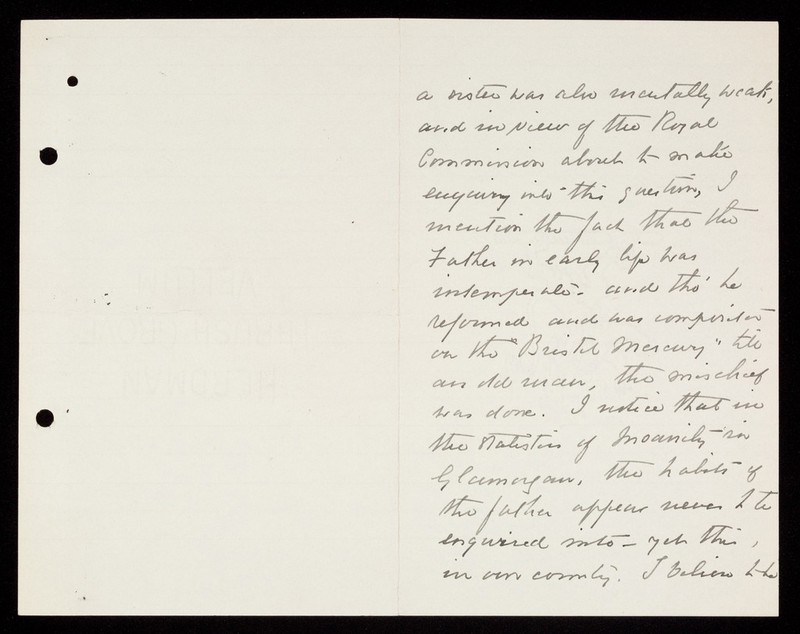 a sister was also mentally weak,
and in view of the Royal
Commission about to make
enquiry into this question, I
mention the fact that the
Father in early life was
intemperate - and tho' he
reformed and was compositor
on the "Bristol Mercury" till
an old man, the mischief
was done. I notice that in
the statistics of Insanity in
Glamorgan, the habits of
the father appear never to be
enquired into - yet this,
in our county. I believe to be